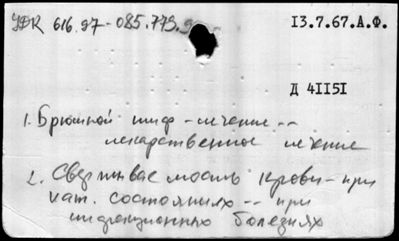 УДК 616.97-085.779.9 13.7.67.А.Ф.
Д 41151
1. Брюшной тиф - лечение --
лекарственное лечение
2. Свертываемость крови - при
пат. состояниях -- при
инфекционных болезнях